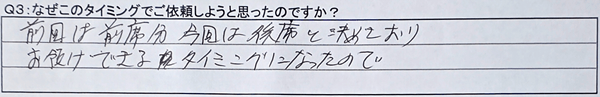 Q3：なぜこのタイミングでご依頼しようと思ったのですか？
前回は前席分 今回は後席と決めており
お預けできるタイミングになったので